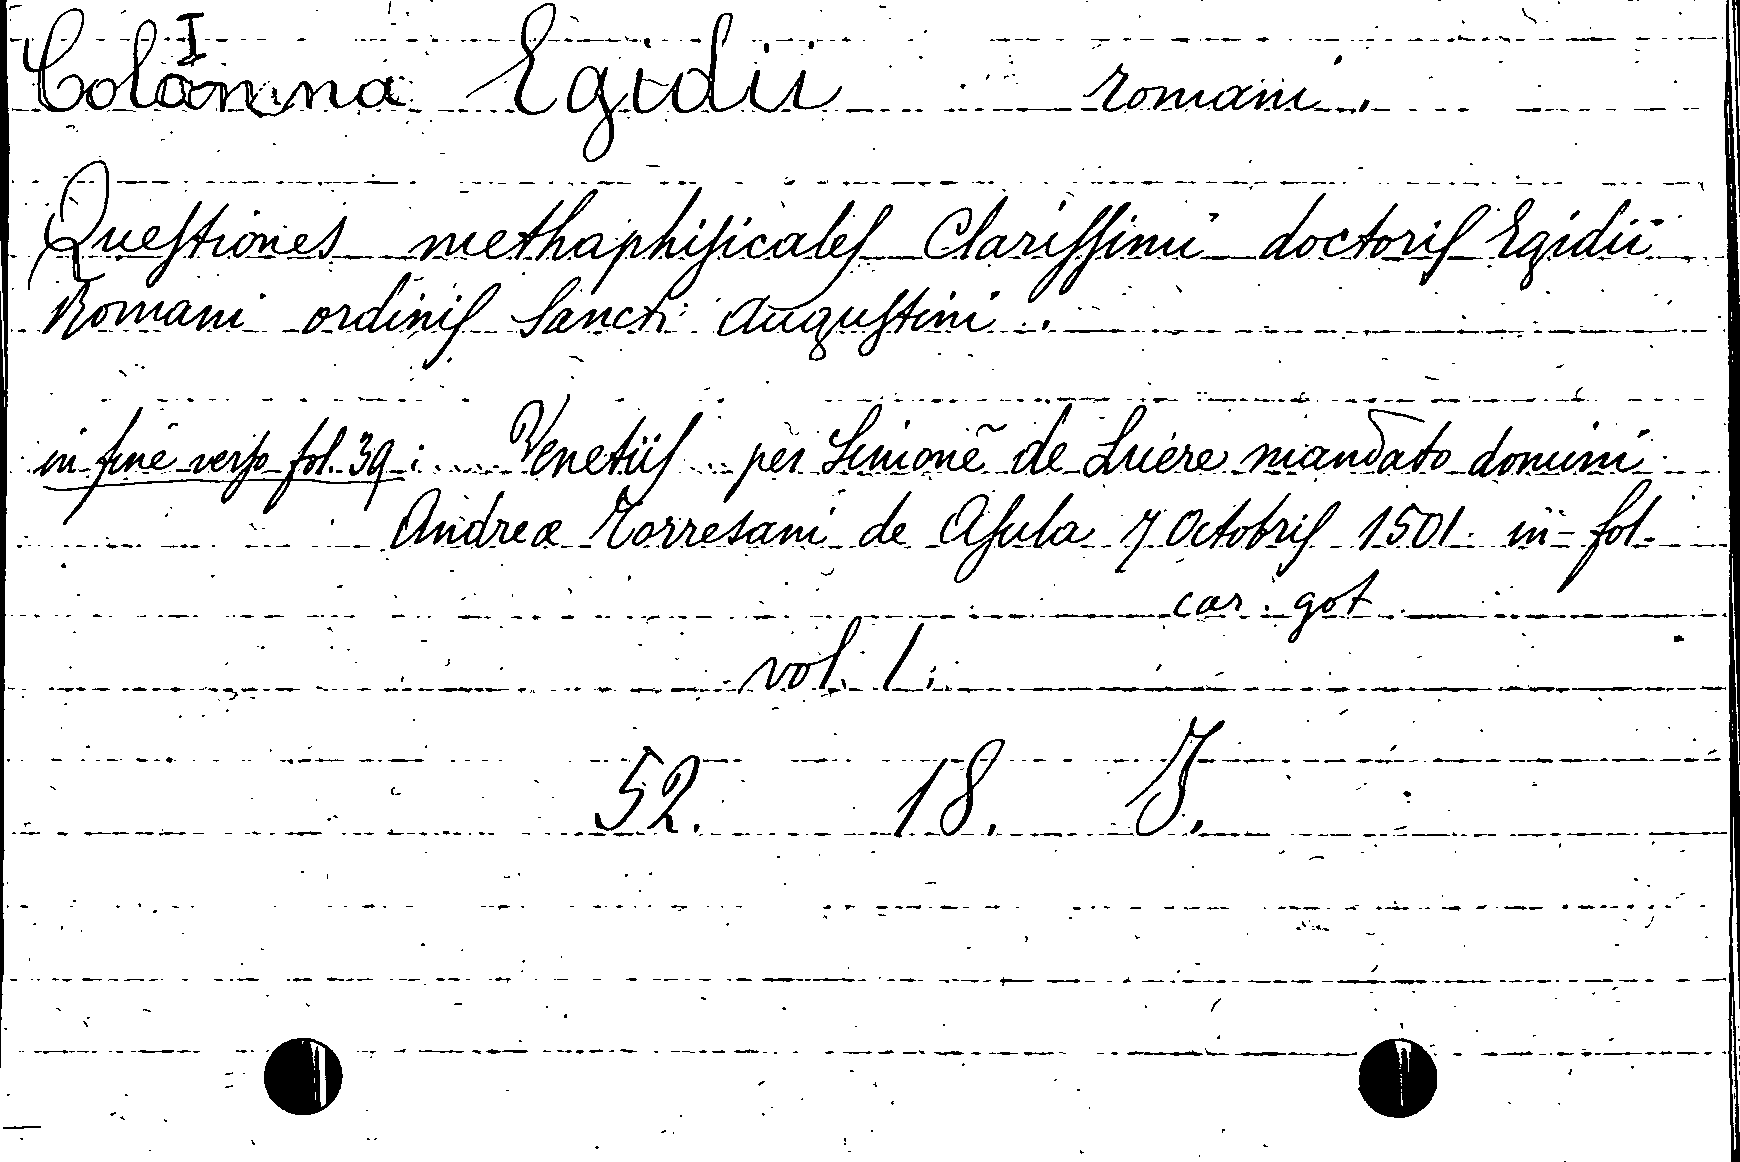 I
Colonna Egidii romani.
Queſtiones methaphiſicaleſ Clariſſimi doctoriſ Egidii
Romani ordiniſ Sancti Auguſtini.
in fine verſo fol. 39: Venetiiſ per Simonē de Luere mandato domini
Andreæ Torresani de Aſula 7 Octobriſ 1501. in-fol.
car. got
vol. 1.
52. 18. J.